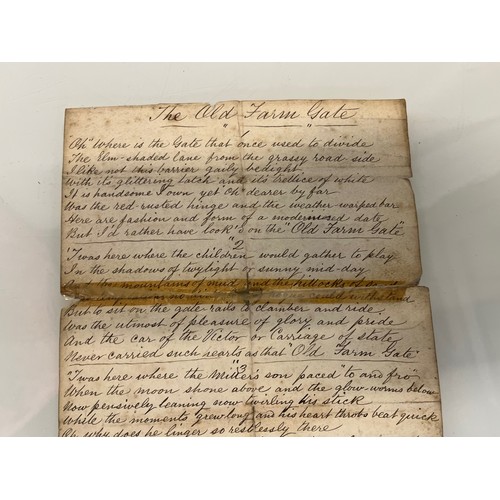 The Old Farm Gate
1
"Oh" Where is the Gate that once used to divide
The Elm-shaded lane from the grassy road side
I like not this barrier gaily bedight
With its glittering latch and its trellice of white
It is handsome I own yet "Oh" dearer by far
Was the red-rusted hinge and the weather-warped bar
Here are fashion and form of a modernised date
But I'd rather have look'd on the "Old Farm Gate"
2
'Twas here where the children would gather to play
In the shadows of twylight or sunny mid-day
And the mountains of mud and the hillocks of
But to sit on the gate rails to clamber and ride
Was the utmost of pleasure of glory and pride
And the car of the Victor or Carriage of state
Never carried such hearts as that "Old Farm Gate"
3
'Twas here where the Miller's son paced "to and fro"
When the moon shone above and the glow-worms below
Now pensively leaning now twirling his stick
While the moments grew long and his heart throbs beat quick
Oh why does he linger so restlessly there